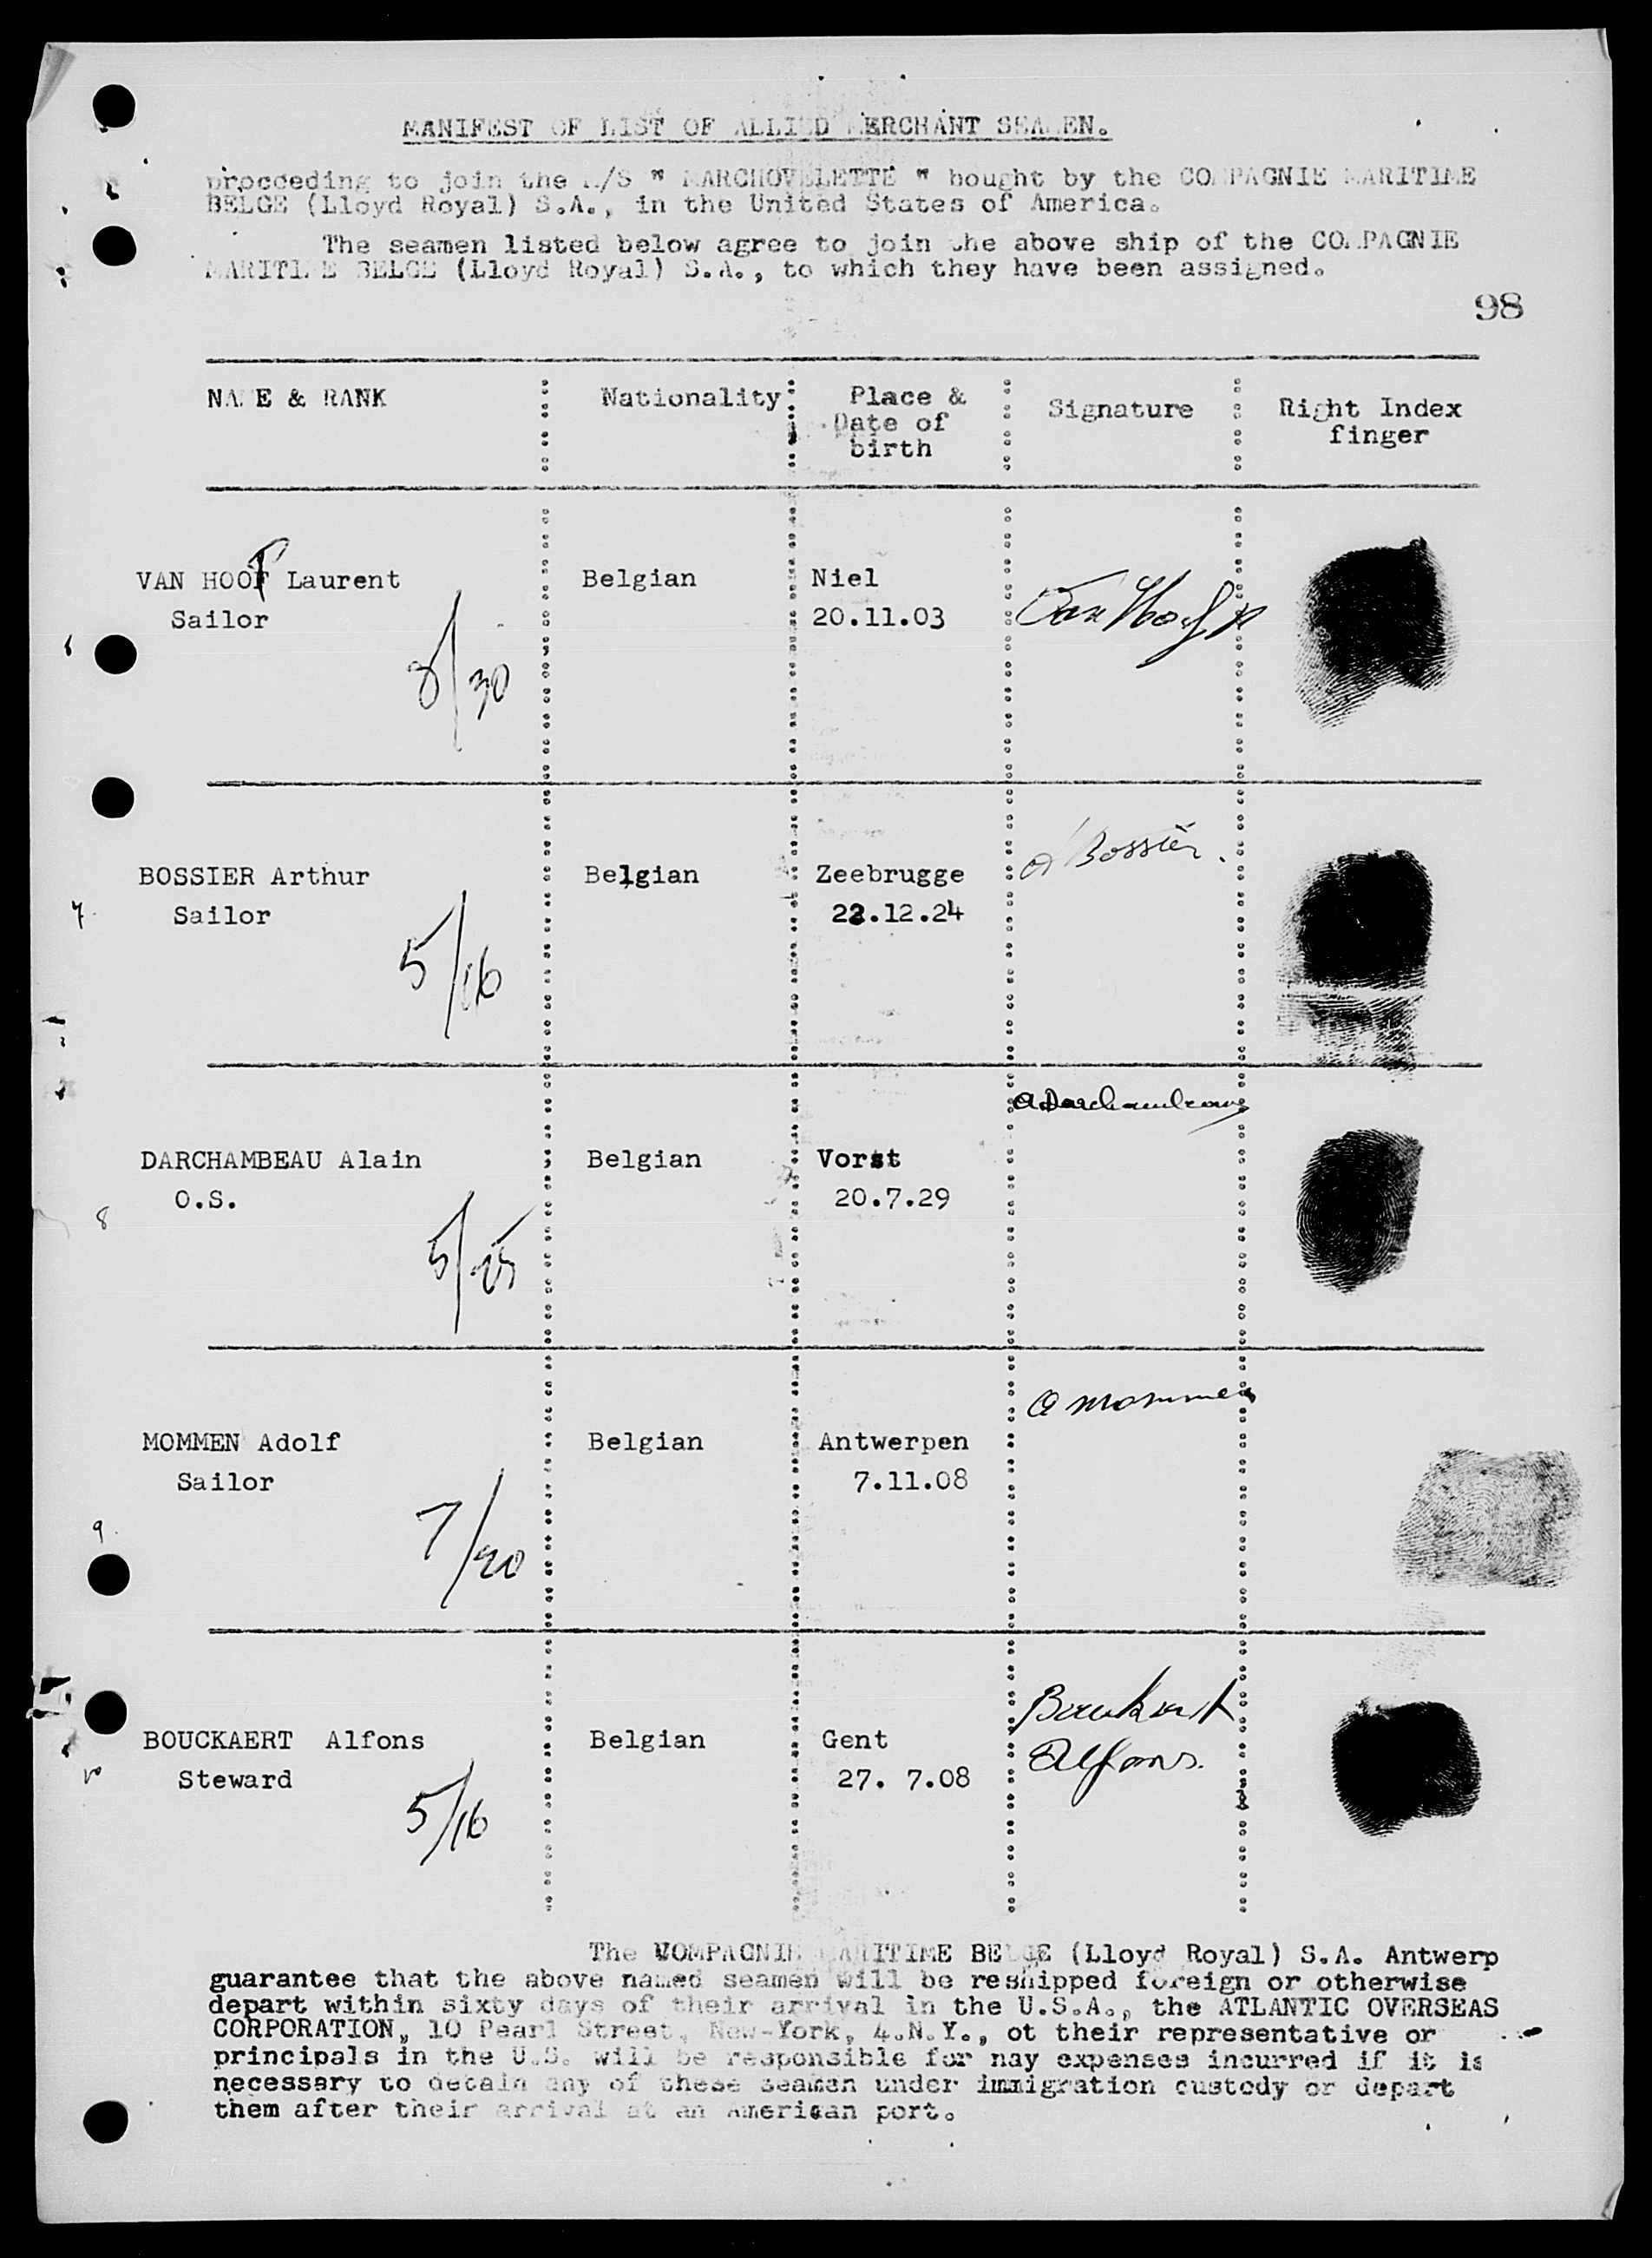 MANIFEST OF LIST OF ALLIED MERCHANT SEAMEN.
procceding to join the M/S " MARCHOVELETTE " bought by the COMPAGNIE MARITIME
BELGE (Lloyd Royal) S.A., in the United States of America.
The seamen listed below agree to join the above ship of the COMPAGNIE
MARITIME BELGE (Lloyd Royal) S.A., to which they have been assigned.
98
NAME & RANK Nationality Place & Signature Right Index
Date of finger
birth
VAN HOOF Laurent Belgian Niel
Sailor 20.11.03 Van Hoof
8/30
BOSSIER Arthur Belgian Zeebrugge A Bossier.
7. Sailor 22.12.24
5/16
ADarchambeau
DARCHAMBEAU Alain Belgian Vorst
8 O.S. 20.7.29
5/25
A Mommen
MOMMEN Adolf Belgian Antwerpen
Sailor 7.11.08
9.
7/20
Bouckaert
BOUCKAERT Alfons Belgian Gent Alfons.
Steward 27. 7.08
5/16
The COMPAGNIE MARITIME BELGE (Lloyd Royal) S.A. Antwerp
guarantee that the above named seamen will be reshipped foreign or otherwise
depart within sixty days of their arrival in the U.S.A., the ATLANTIC OVERSEAS
CORPORATION, 10 Pearl Street, New-York, 4.N.Y., ot their representative or
principals in the U.S. will be responsible for nay expenses incurred if it is
necessary to detain any of these seamen under immigration custody or depart
them after their arrival at an American port.